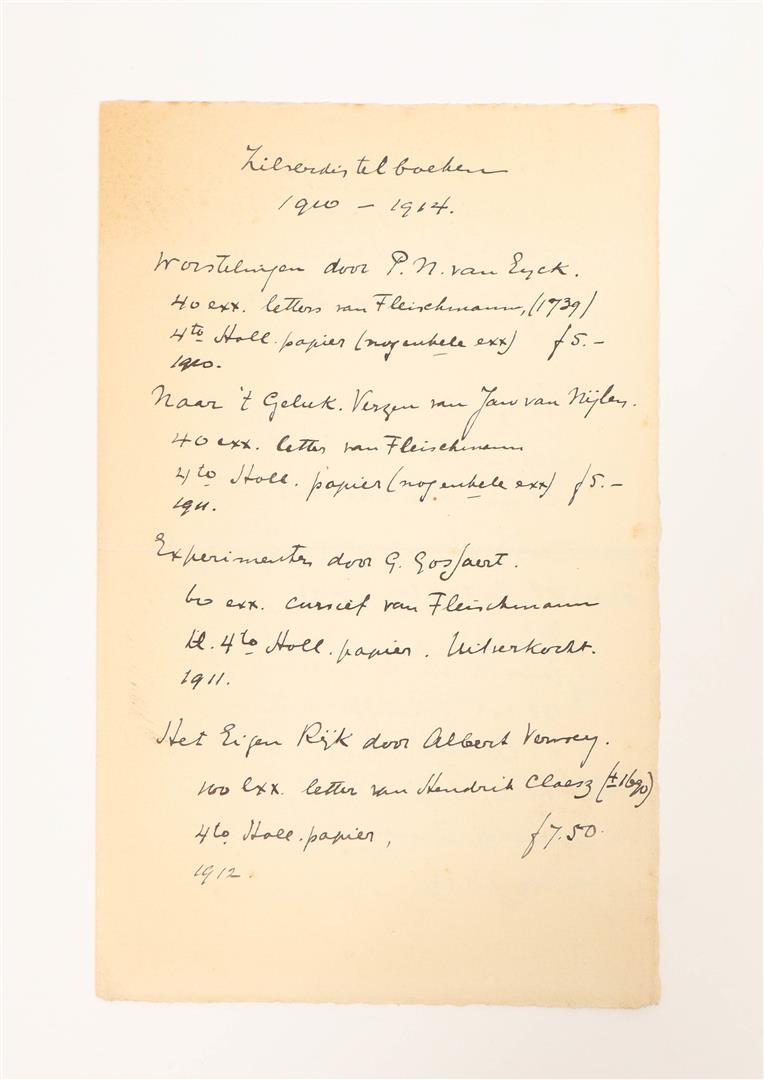 Zilverdistelboeken
1910 – 1914.
Worstelingen door P. N. van Eyck.
40 exx. letters van Fleischmann, (1739)
4to Holl. papier (nog enkele exx) f 5.–
1910.
Naar 't Geluk. Verzen van Jan van Nijlen.
40 exx. letter van Fleischmann
4to Holl. papier (nog enkele exx) f 5.–
1911.
Experimenten door G. Gossaert.
60 exx. cursief van Fleischmann
kl. 4to Holl. papier. Uitverkocht.
1911.
Het Eigen Rijk door Albert Verwey.
100 exx. letter van Hendrik Claesz (± 1690)
4to Holl. papier, f 7.50.
1912.